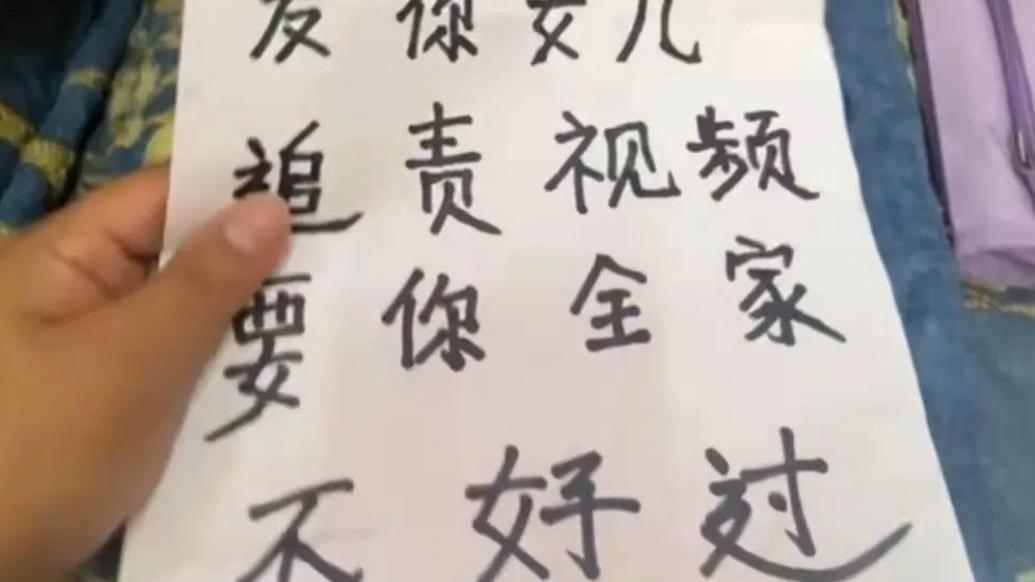 发你女儿
追责视频
要你全家
不好过